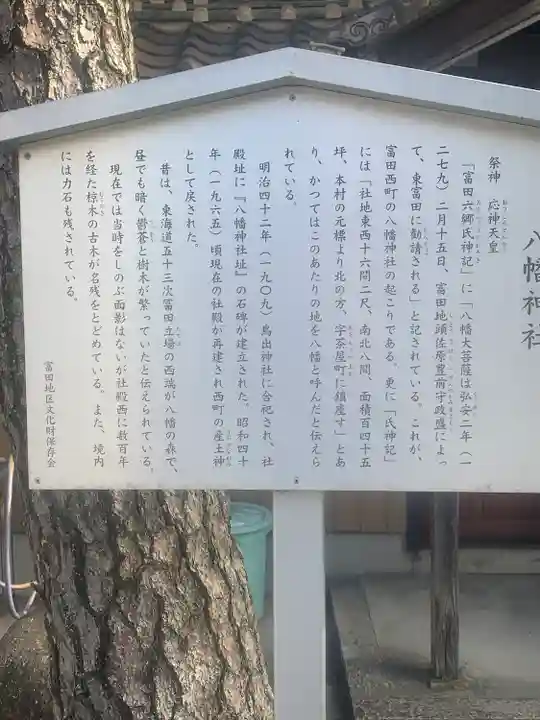 八幡神社
祭神　応神天皇
「富田六郷氏神記」に「八幡大菩薩は弘安二年（一
二七九）二月十五日、富田地頭佐原豊前守政盛によっ
て、東富田に勧請される」と記されている。これが、
富田西町の八幡神社の起こりである。更に「氏神記」
には「社地東西十六間二尺、南北八間、面積百四十五
坪、本村の元標より北の方、字茶屋町に鎮座す」とあ
り、かつてはこのあたりの地を八幡と呼んだと伝えら
れている。
明治四十二年（一九〇九）鳥出神社に合祀され、社
殿址に『八幡神社址』の石碑が建立された。昭和四十
年（一九六五）頃現在の社殿が再建され西町の産土神
として戻された。
昔は、東海道五十三次富田立場の西端が八幡の森で、
昼でも暗く鬱蒼と樹木が繁っていたと伝えられている。
現在では当時をしのぶ面影はないが社殿西に数百年
を経た椋木の古木が名残をとどめている。また、境内
には力石も残されている。
富田地区文化財保存会